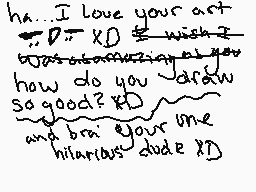 ha...I love your art
":D" XD I wish I
was as amazing as you
how do you draw
so good? XD
and bra: your one
hilarious dude XD